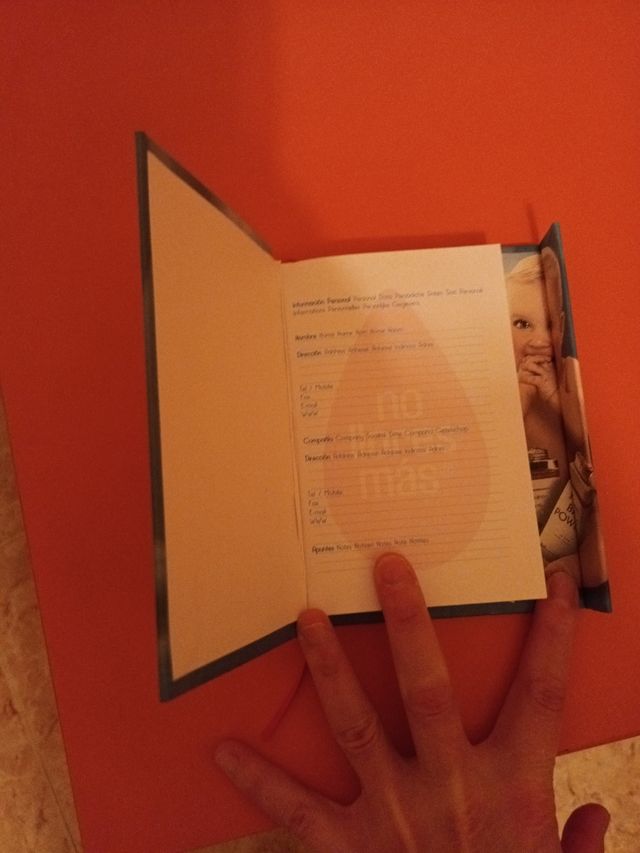 Información Personal Personal Data Persönliche Daten Dati Personali
Informations Personnelles Persoonlijke Gegevens
Nombre Name Name Nom Nome Naam
Dirección Address Adresse Adresse Indirizzo Adres
Tel / Mobile
Fax
E-mail
WWW
no
más
Compañía Company
Dirección Address Adresse Adresse Indirizzo Adres
Tel / Mobile
Fax
E-mail
WWW
Apuntes Notes Notizen Notes Note Notities
POW